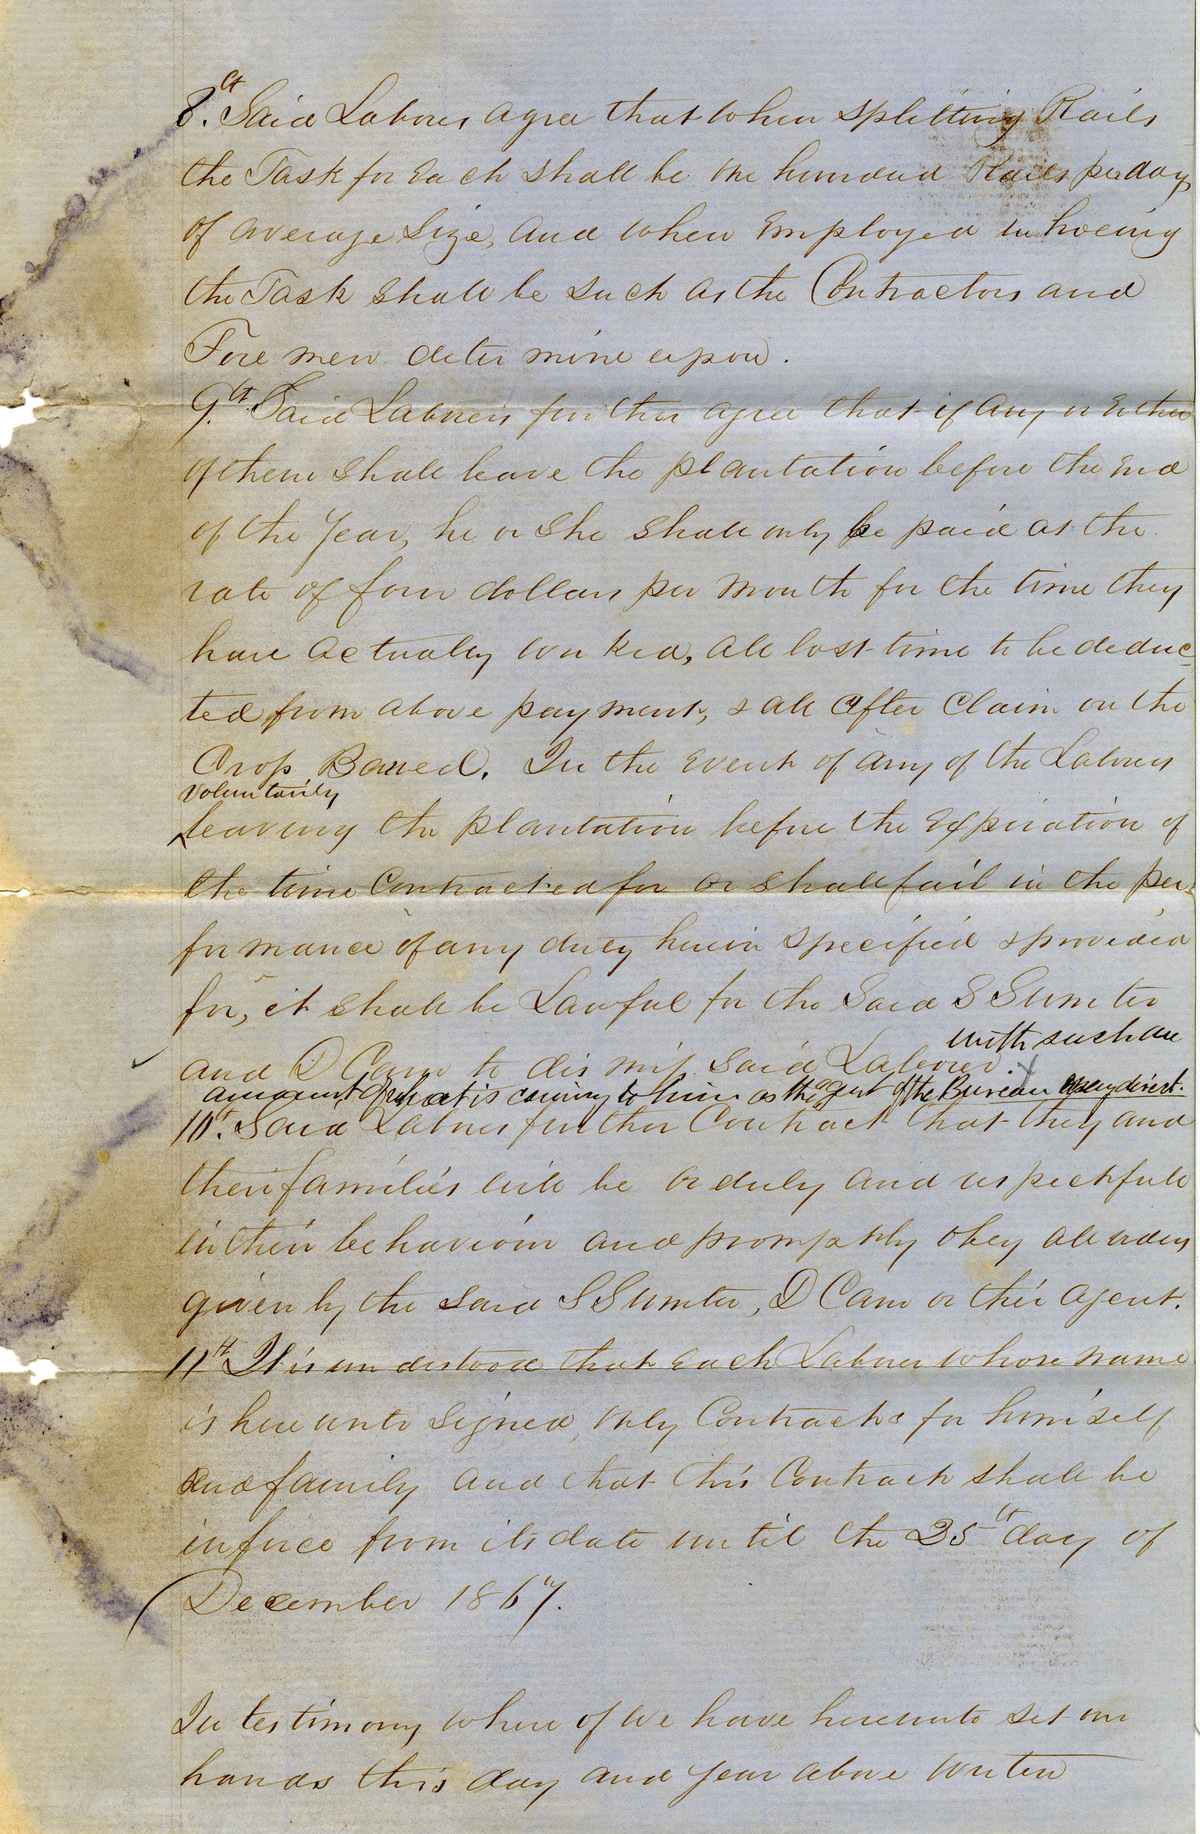 8th Said Laborers agree that when splitting Rails
the Task for Each shall be one hundred Rails per day,
of average Size, and when Employed in hoeing
the Task shall be such as the Contractors and
Fore men deter mine upon.
9th Said Laborers further agree that if Any or Either
of them shall leave the plantation before the End
of the Year, he or she shall only be paid at the
rate of four dollars per Month for the time they
have actually worked, all lost time to be deduc-
ted from above payment, & all after Claim on the
Crop Barred. In the Event of any of the Laborers
voluntarily
leaving the plantation before the Expiration of
the time Contracted for or shall fail in the per-
formance of any duty herein specified & provided
for, it shall be Lawful for the Said S Sumter
with such an
and D Cam to dismiss said Laborer.
amount of what is coming to him as the agent of the Bureau may direct.
10th. Said Laborers further Contract that they and
their families will be orderly and respectfull
in their behavioir and promptly obey all orders
given by the said S Sumter, D Cam or their Agent.
11th It is understood that each Laborer whose name
is here unto signed, only Contracts for himself
and family and that this Contract shall be
in force from its date until the 25th day of
December 1867.
In testimony where of we have hereunto set our
hands this day and year above written